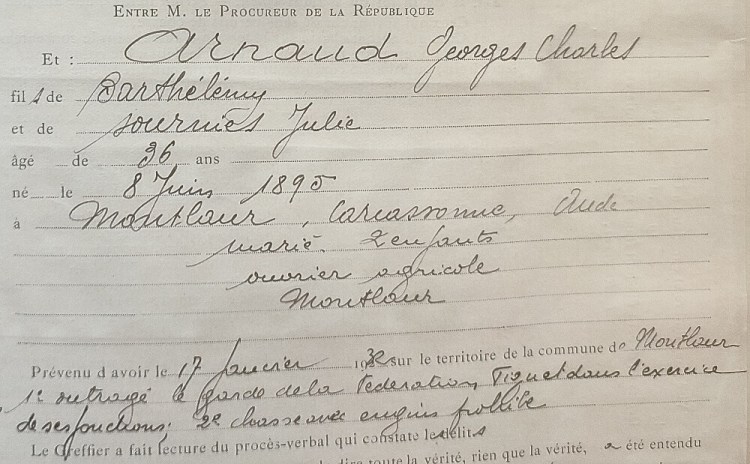 ENTRE M. LE PROCUREUR DE LA RÉPUBLIQUE
Et : Arnaud Georges Charles
fils de Barthélémy
et de Journiès Julie
âgé de 36 ans
né le 8 Juin 1895
à Montlaur, Carcassonne, Aude
marié. 2 enfants
ouvrier agricole
Montlaur
Prévenu d avoir le 17 Janvier 1932 sur le territoire de la commune de Montlaur
1º outragé le garde de la Fédération, Tiquet dans l'exercice
de ses fonctions; 2º chasse avec engins prohibé
Le Greffier a fait lecture du procès-verbal qui constate les délits
dire toute la vérité, rien que la vérité, a été entendu